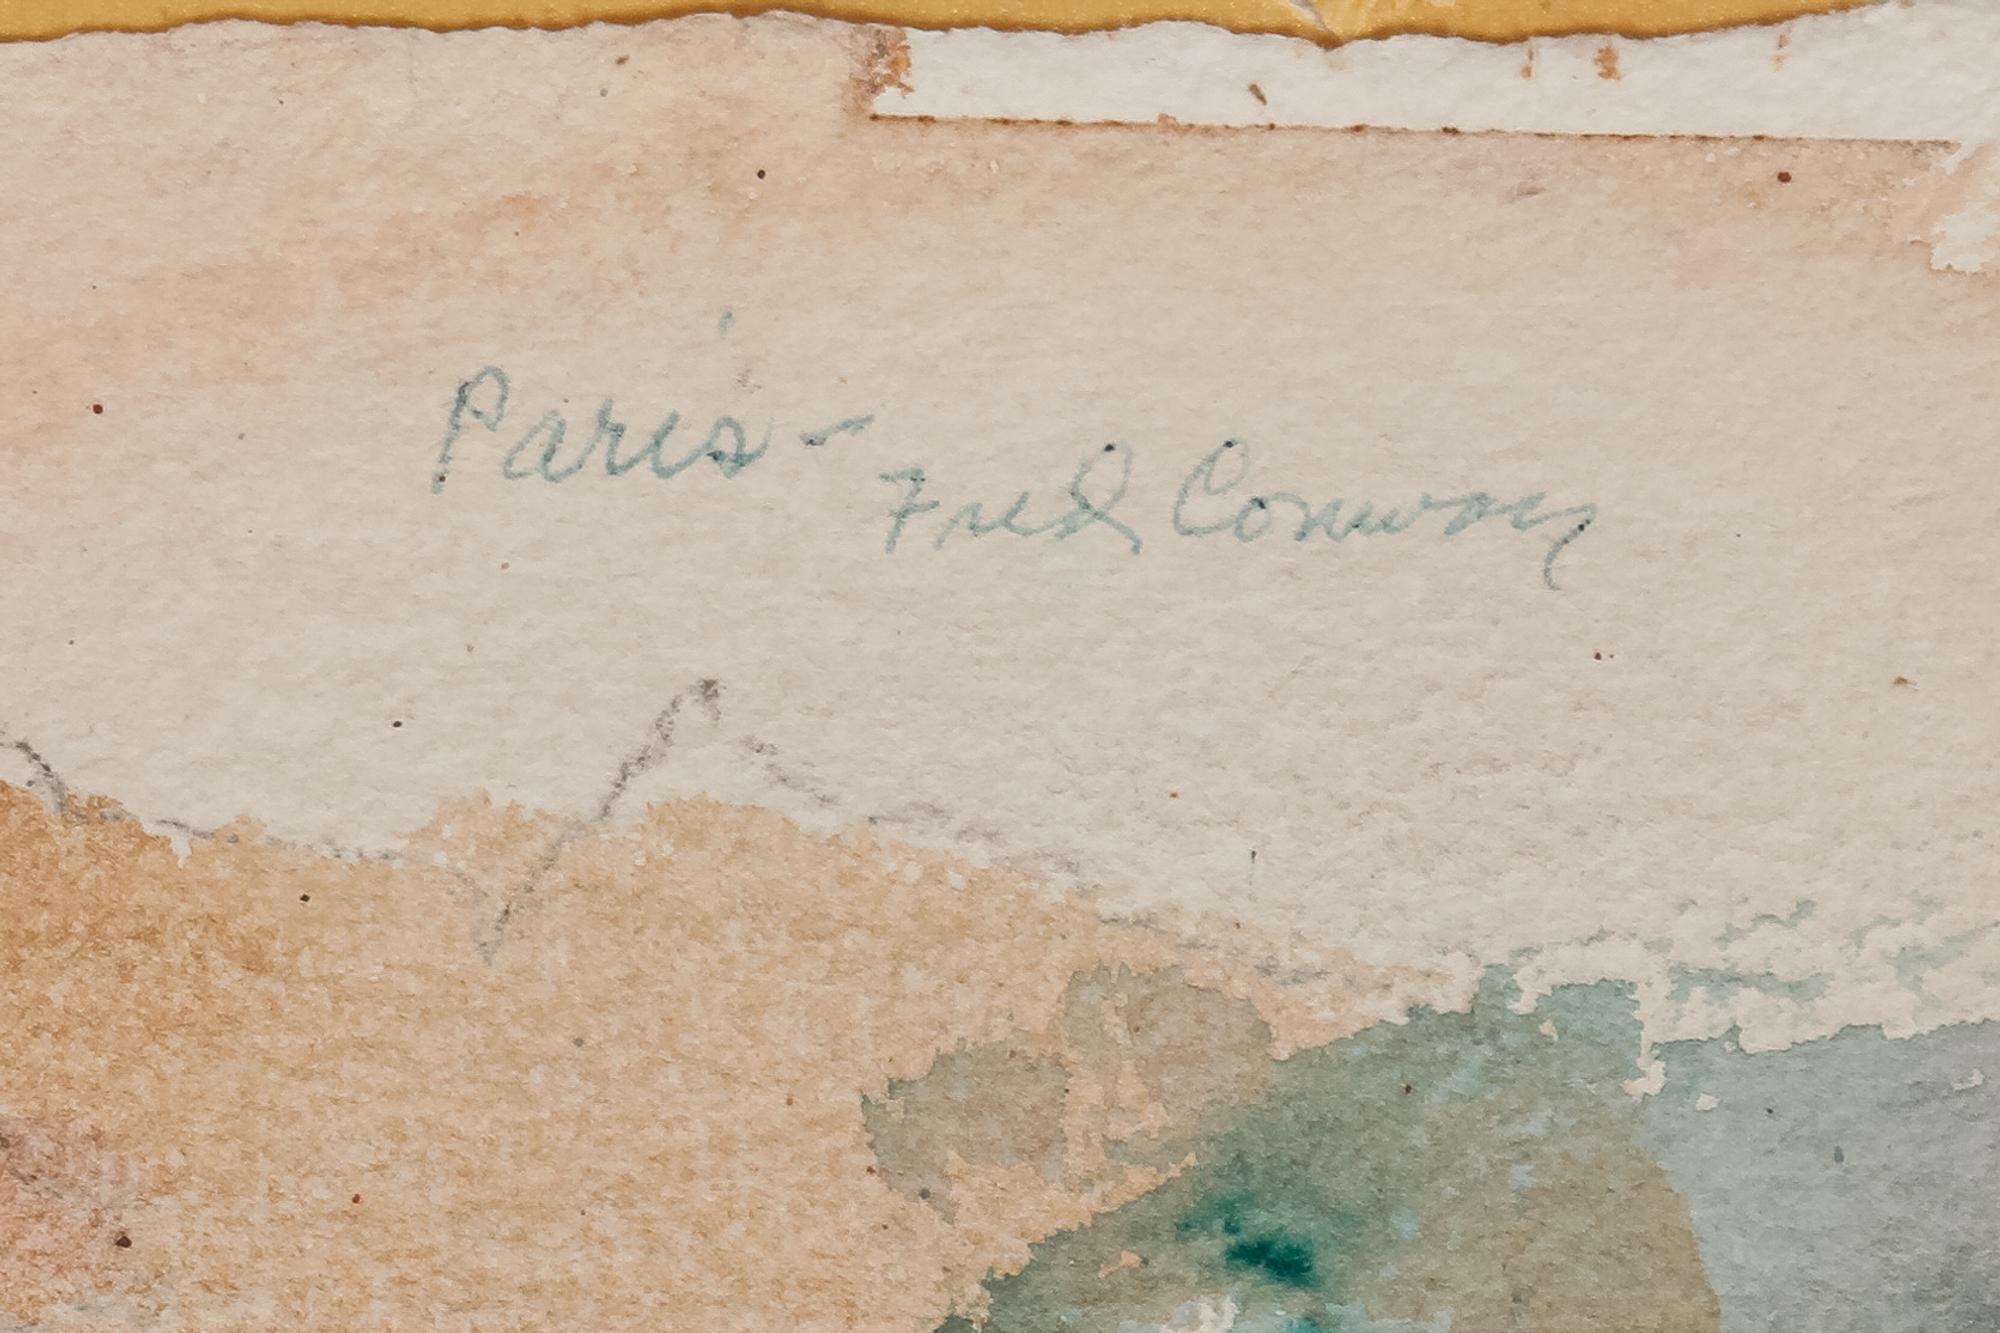 Paris -
Fred Conway